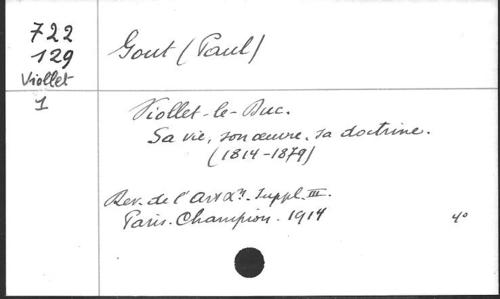 722
129
Viollet
1
Gout (Paul)
Viollet-le-Duc.
Sa vie, son œuvre, sa doctrine.
(1814-1879)
Rev. de l'Art Xn. Suppl. III.
Paris. Champion. 1914
4°